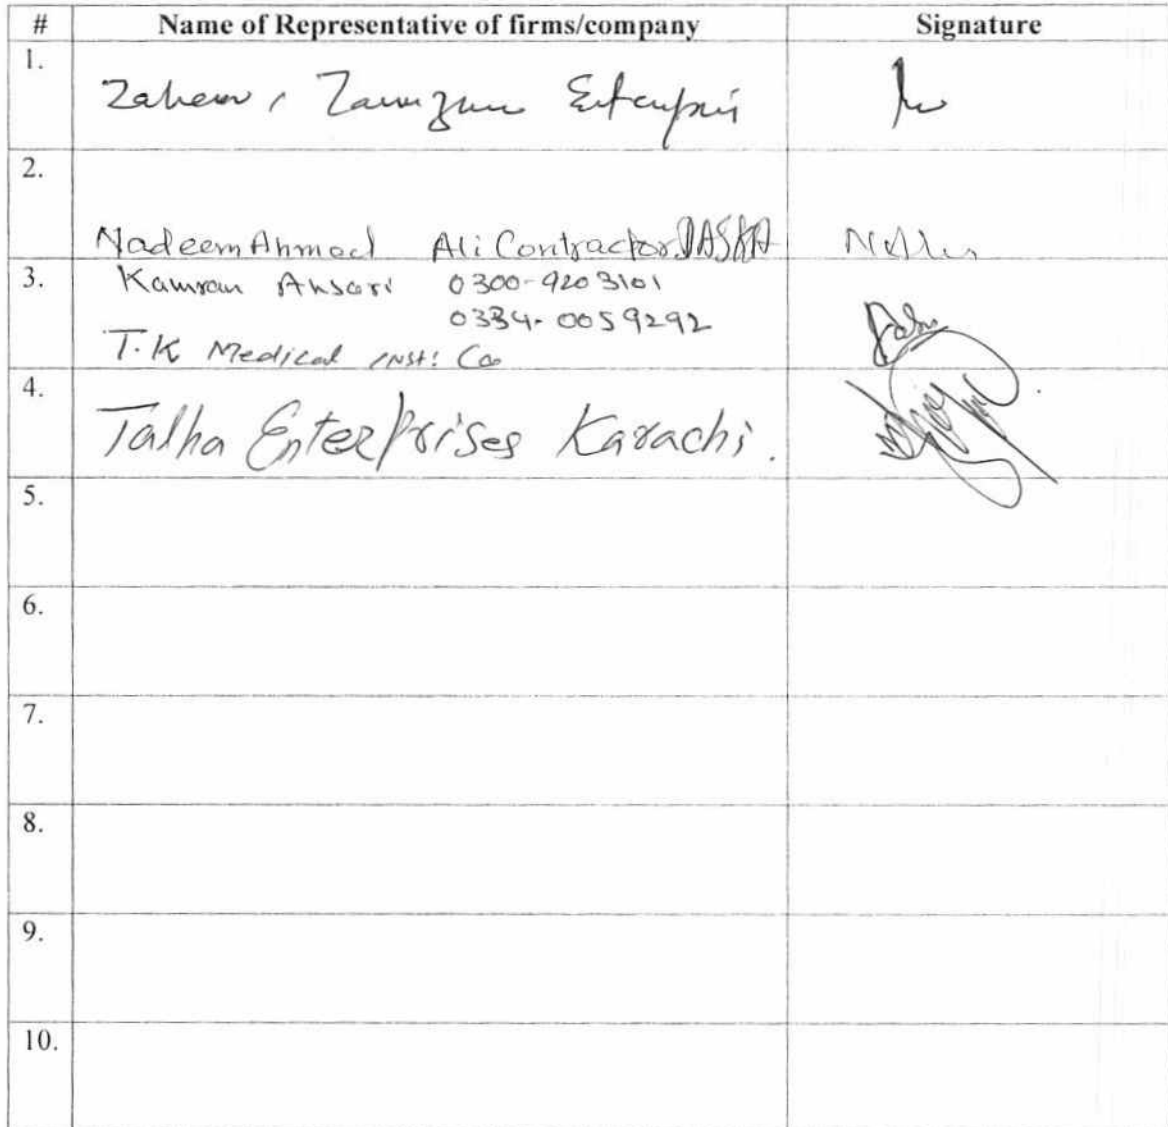 # Name of Representative of firms/company Signature
1.
Zaheer, Zamzum
2.
Nadeem Ahmad Ali Contractor DASKA
3. Kamran Ansari 0300-9203101
0334-0059292
T.K Medical inst: Co
4.
Talha Enterprises Karachi.
5.
6.
7.
8.
9.
10.